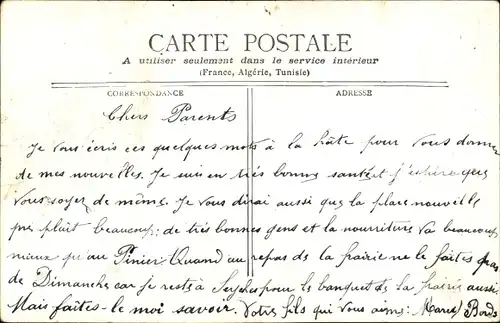 CARTE POSTALE
A utiliser seulement dans le service intérieur
(France, Algérie, Tunisie)
CORRESPONDANCE ADRESSE
Chers Parents
Je vous écris ces quelques mots à la hâte pour vous donner
de mes nouvelles. Je suis en très bonne santé et j'espère que
vous soyez de même. Je vous dirai aussi que la place nouvelle
me plait beaucoup; de très bonnes gens et la nourriture va beaucoup
mieux qu'au Pinier. Quand au repas de la frairie ne le faites pas
de Dimanche car je reste à pour le banquet de la frairie aussi.
Mais faites-le moi savoir. Votre fils qui vous aime.